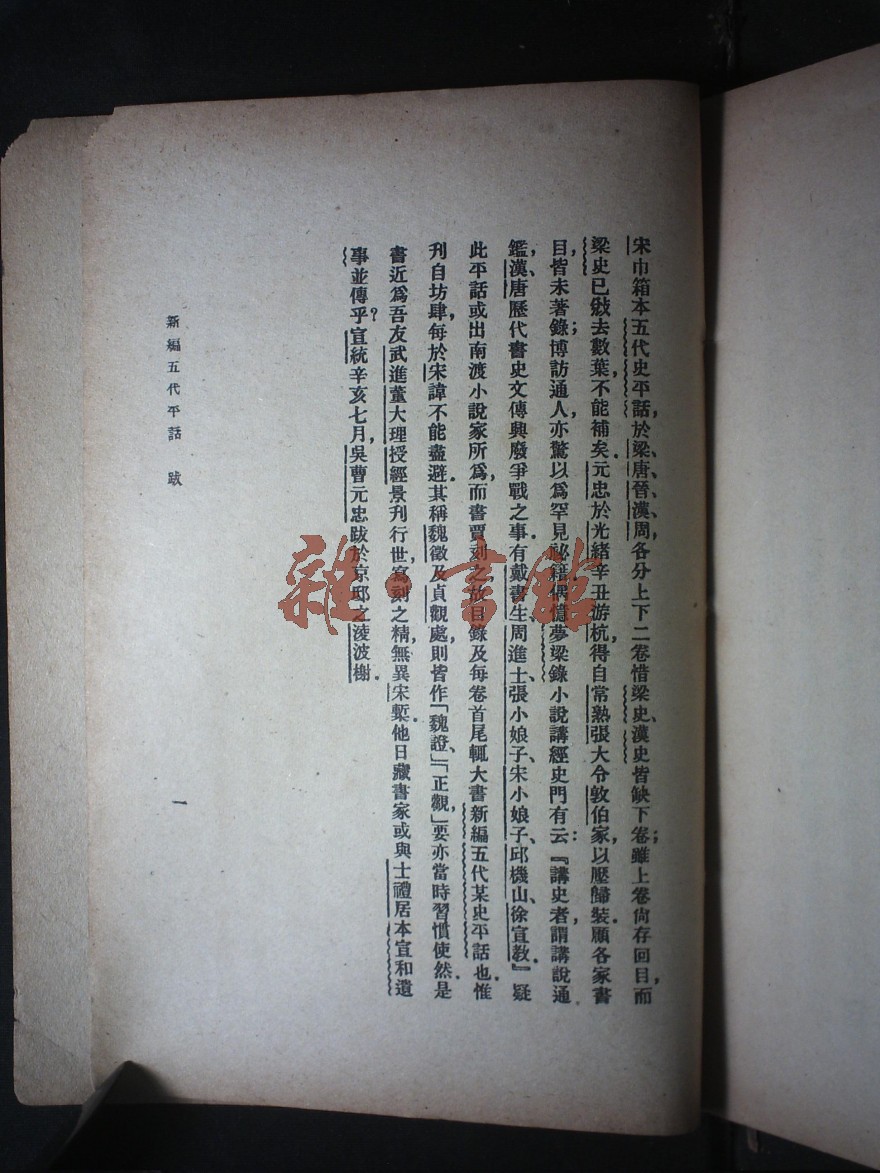 宋巾箱本五代史平話，於梁、唐、晉、漢、周，各分上下二卷惜梁史、漢史皆缺下卷雖上卷尙存回目；而
梁史已敓去數葉，不能補矣．元忠於光緒辛丑游杭，得自常熟張大令敦伯家，以壓歸裝．顧各家書
目，皆未著錄；博訪通人，亦驚以爲罕見祕籍．偶憶夢梁錄小說講經史門有云：『講史者，謂講說通
鑑，漢、唐歷代書史文傳興廢爭戰之事．有戴書生、周進士、張小娘子、宋小娘子、邱機山、徐宣教．』疑
此平話或出南渡小說家所爲，而書賈刻之．故目錄及每卷首尾輒大書新編五代某史平話也．惟
刊自坊肆，每於宋諱不能盡避．其稱魏徵及貞觀處，則皆作「魏證」、「正觀」，要亦當時習慣使然．是
書近爲吾友武進董大理授經景刊行世，寫刻之精，無異宋槧．他日藏書家或與士禮居本宣和遺
事並傳乎？宣統辛亥七月，吳曹元忠跋於京邸之淩波榭．
新編五代平話　跋
一
雜·書館